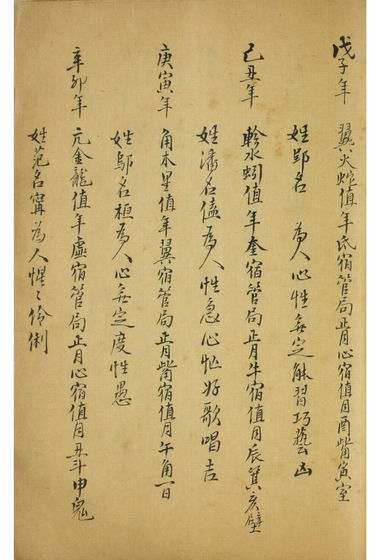 戊子年 翼火蛇值年氐宿管局正月心宿值月酉觜寅室
姓郢名 為人心性無定觧習巧藝凶
己丑年 軫水蚓值年奎宿管局正月牛宿值月辰箕亥壁
姓潘名 為人性急心忙好歌唱吉
庚寅年 角木星值年翼宿管局正月觜宿值月午角一日
姓鄔名桓為人心無定度性愚
辛卯年 亢金龍值年虛宿管局正月心宿值月丑斗申鬼
姓范名甯為人惺〻伶俐